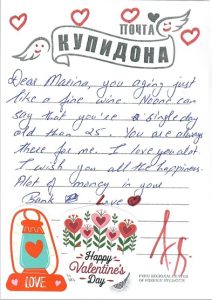 ПОЧТА
КУПИДОНА
Dear Marina, you aging just
like a fine wine. Noone can
say that you're a single day
old than 25. You are always
there for me. I love you alot
I wish you all the happiness.
Alot of money in your
Bank Love
Happy
Valentine's
Day
LOVE